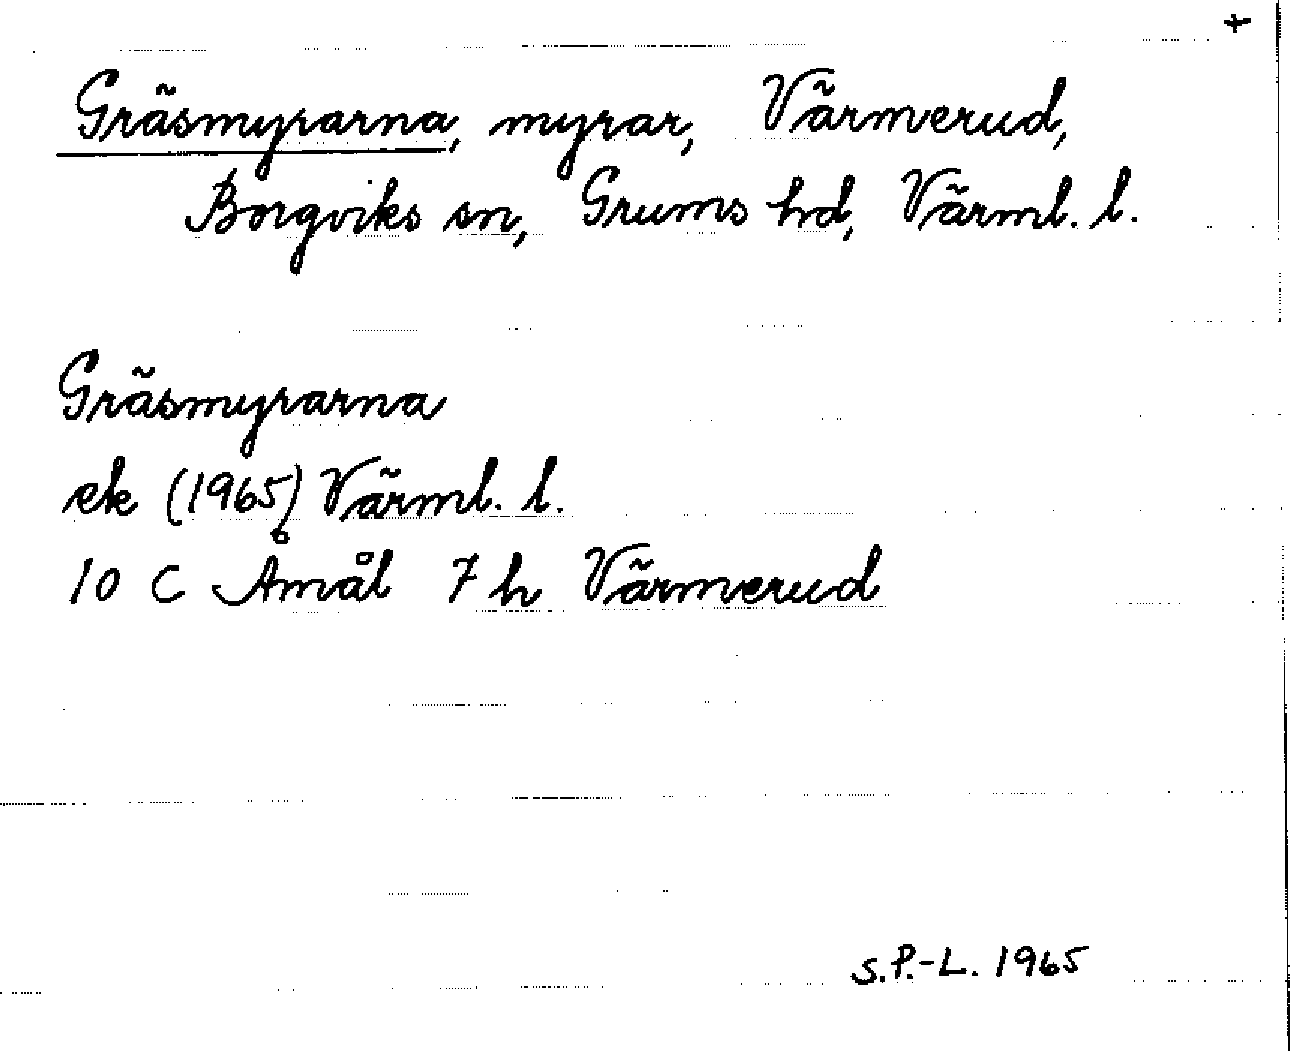 +
Gräsmyrarna, myrar, Värmerud,
Borgviks sn, Grums hd, Värml. l.
Gräsmyrarna
ek (1965) Värml. l.
10 C Åmål 7 h Värmerud
S.P.-L. 1965